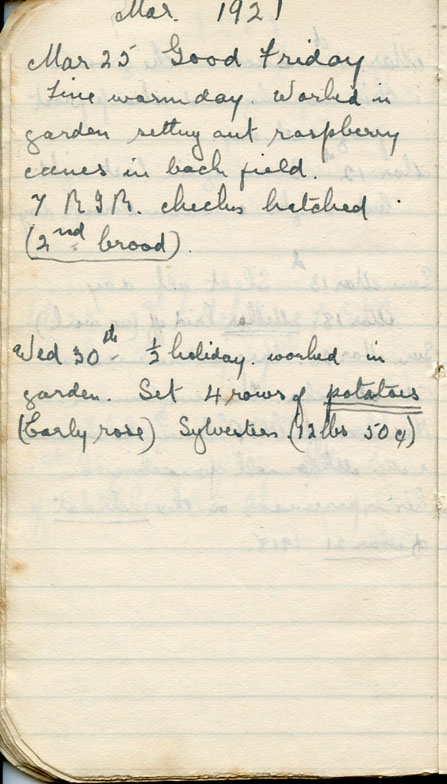 Mar. 1921
Mar 25 Good Friday
Fine warm day Worked in
garden setting out raspberry
canes in back field.
7 R I R. chicks hatched
(2nd brood).
Wed 30th - ½ holiday. worked in
garden. Set 4 rows of potatoes
(Early rose) Sylvesters (12 lbs 50¢)